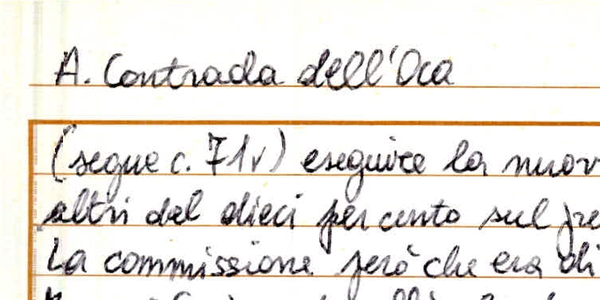 A. Contrada dell'Oca
(segue c. 71v) eseguire la nuov
altri del dieci per cento sul pre
La commissione però che era di